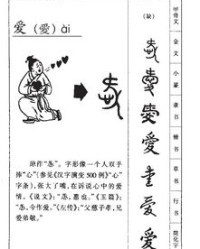 爱（愛）ài
原作“㤅”。字形像一个人双手
捧“心”（参见《汉字演变500例》“心”
字条），张大了嘴，在诉说心中的爱
情。《说文》：“㤅，惠也。”《玉篇》：
“㤅，今作爱。”《左传》：“父慈子孝，兄
爱弟敬。”
甲骨文
金文
小篆
隶书
楷书
草书
行书
简化字
愛
爱